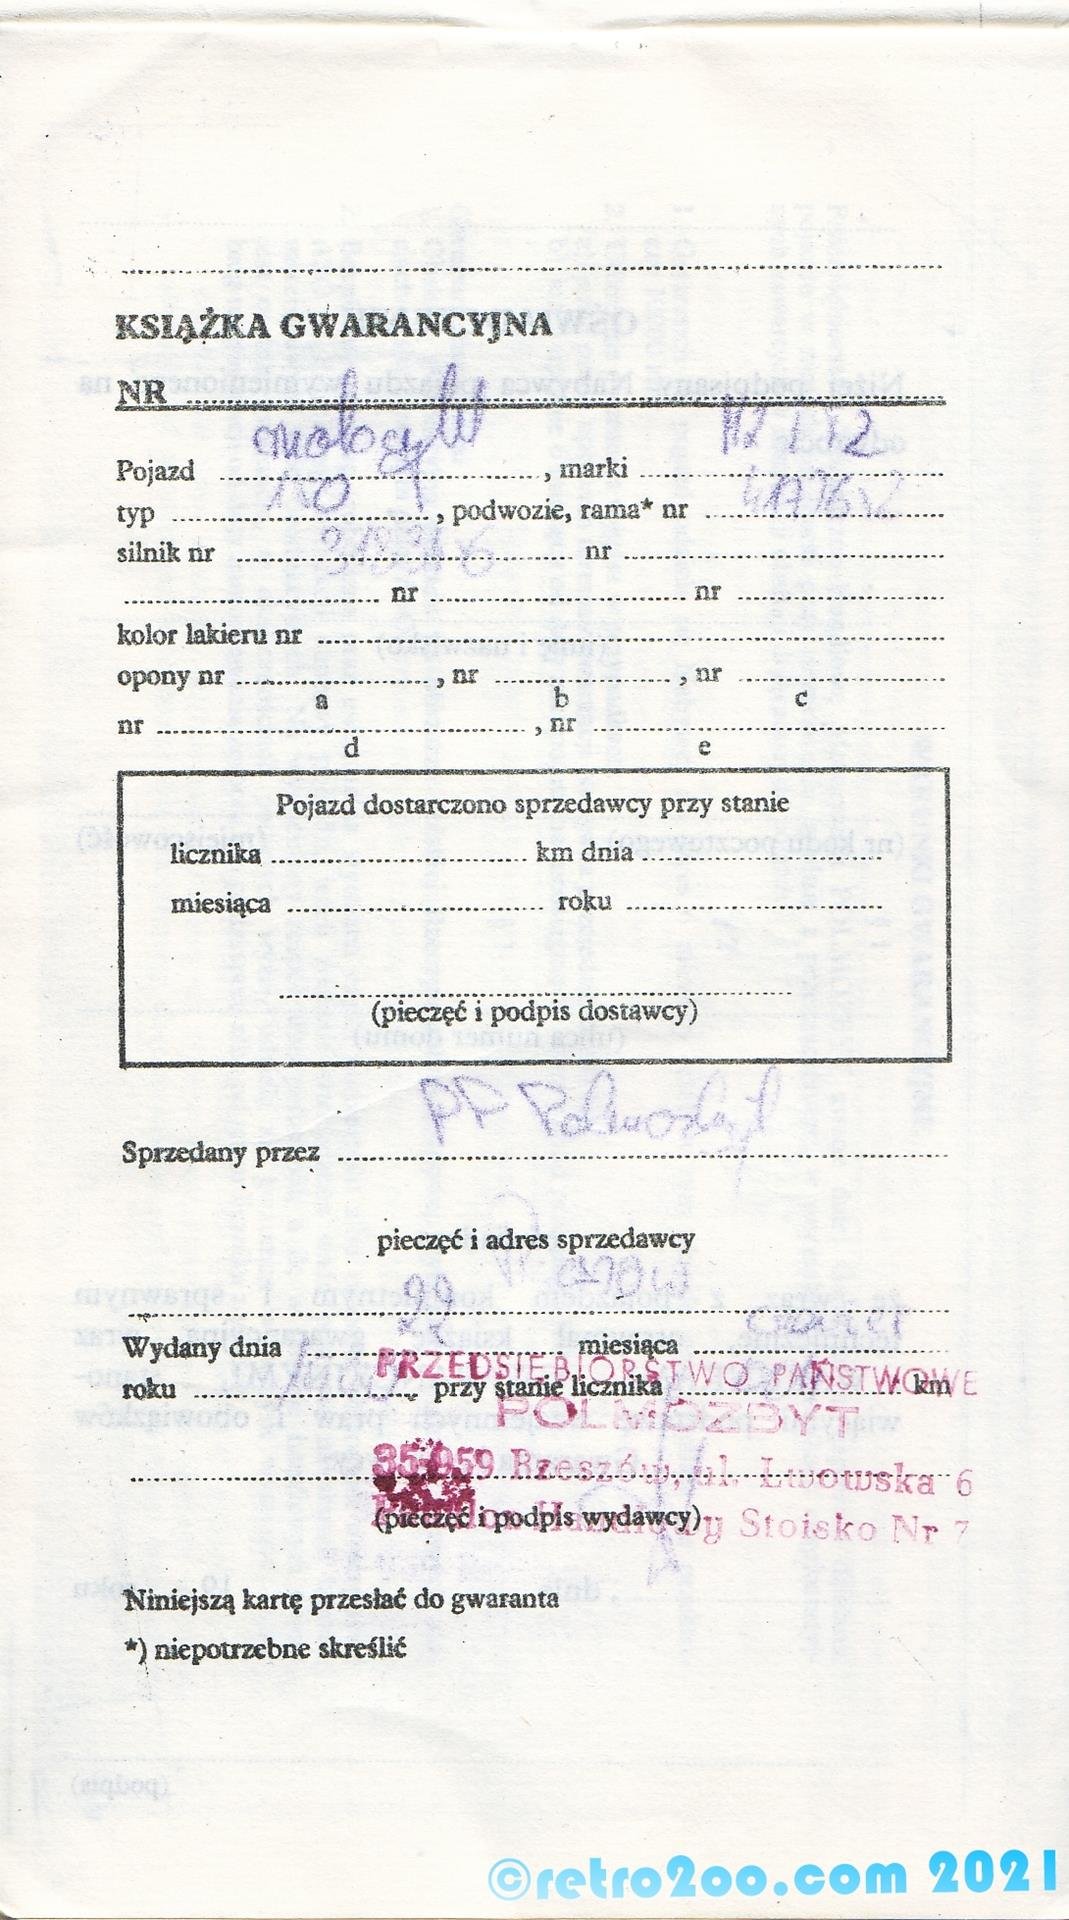 KSIĄŻKA GWARANCYJNA
NR
motocykl MZ
Pojazd , marki
150
typ , podwozie, rama* nr
silnik nr nr
nr nr
kolor lakieru nr
opony nr , nr , nr
a b c
nr , nr
d e
Pojazd dostarczono sprzedawcy przy stanie
licznika km dnia
miesiąca roku
(pieczęć i podpis dostawcy)
PP Polmozbyt
Sprzedany przez
pieczęć i adres sprzedawcy
Wydany dnia 22 miesiąca
PRZEDSIĘBIORSTWO PAŃSTWOWE
roku przy stanie licznika km
POLMOZBYT
35-959 Rzeszów, ul. Lwowska 6
Handlowy Stoisko Nr 7
(pieczęć i podpis wydawcy)
Niniejszą kartę przesłać do gwaranta
*) niepotrzebne skreślić
©retro2oo.com 2021